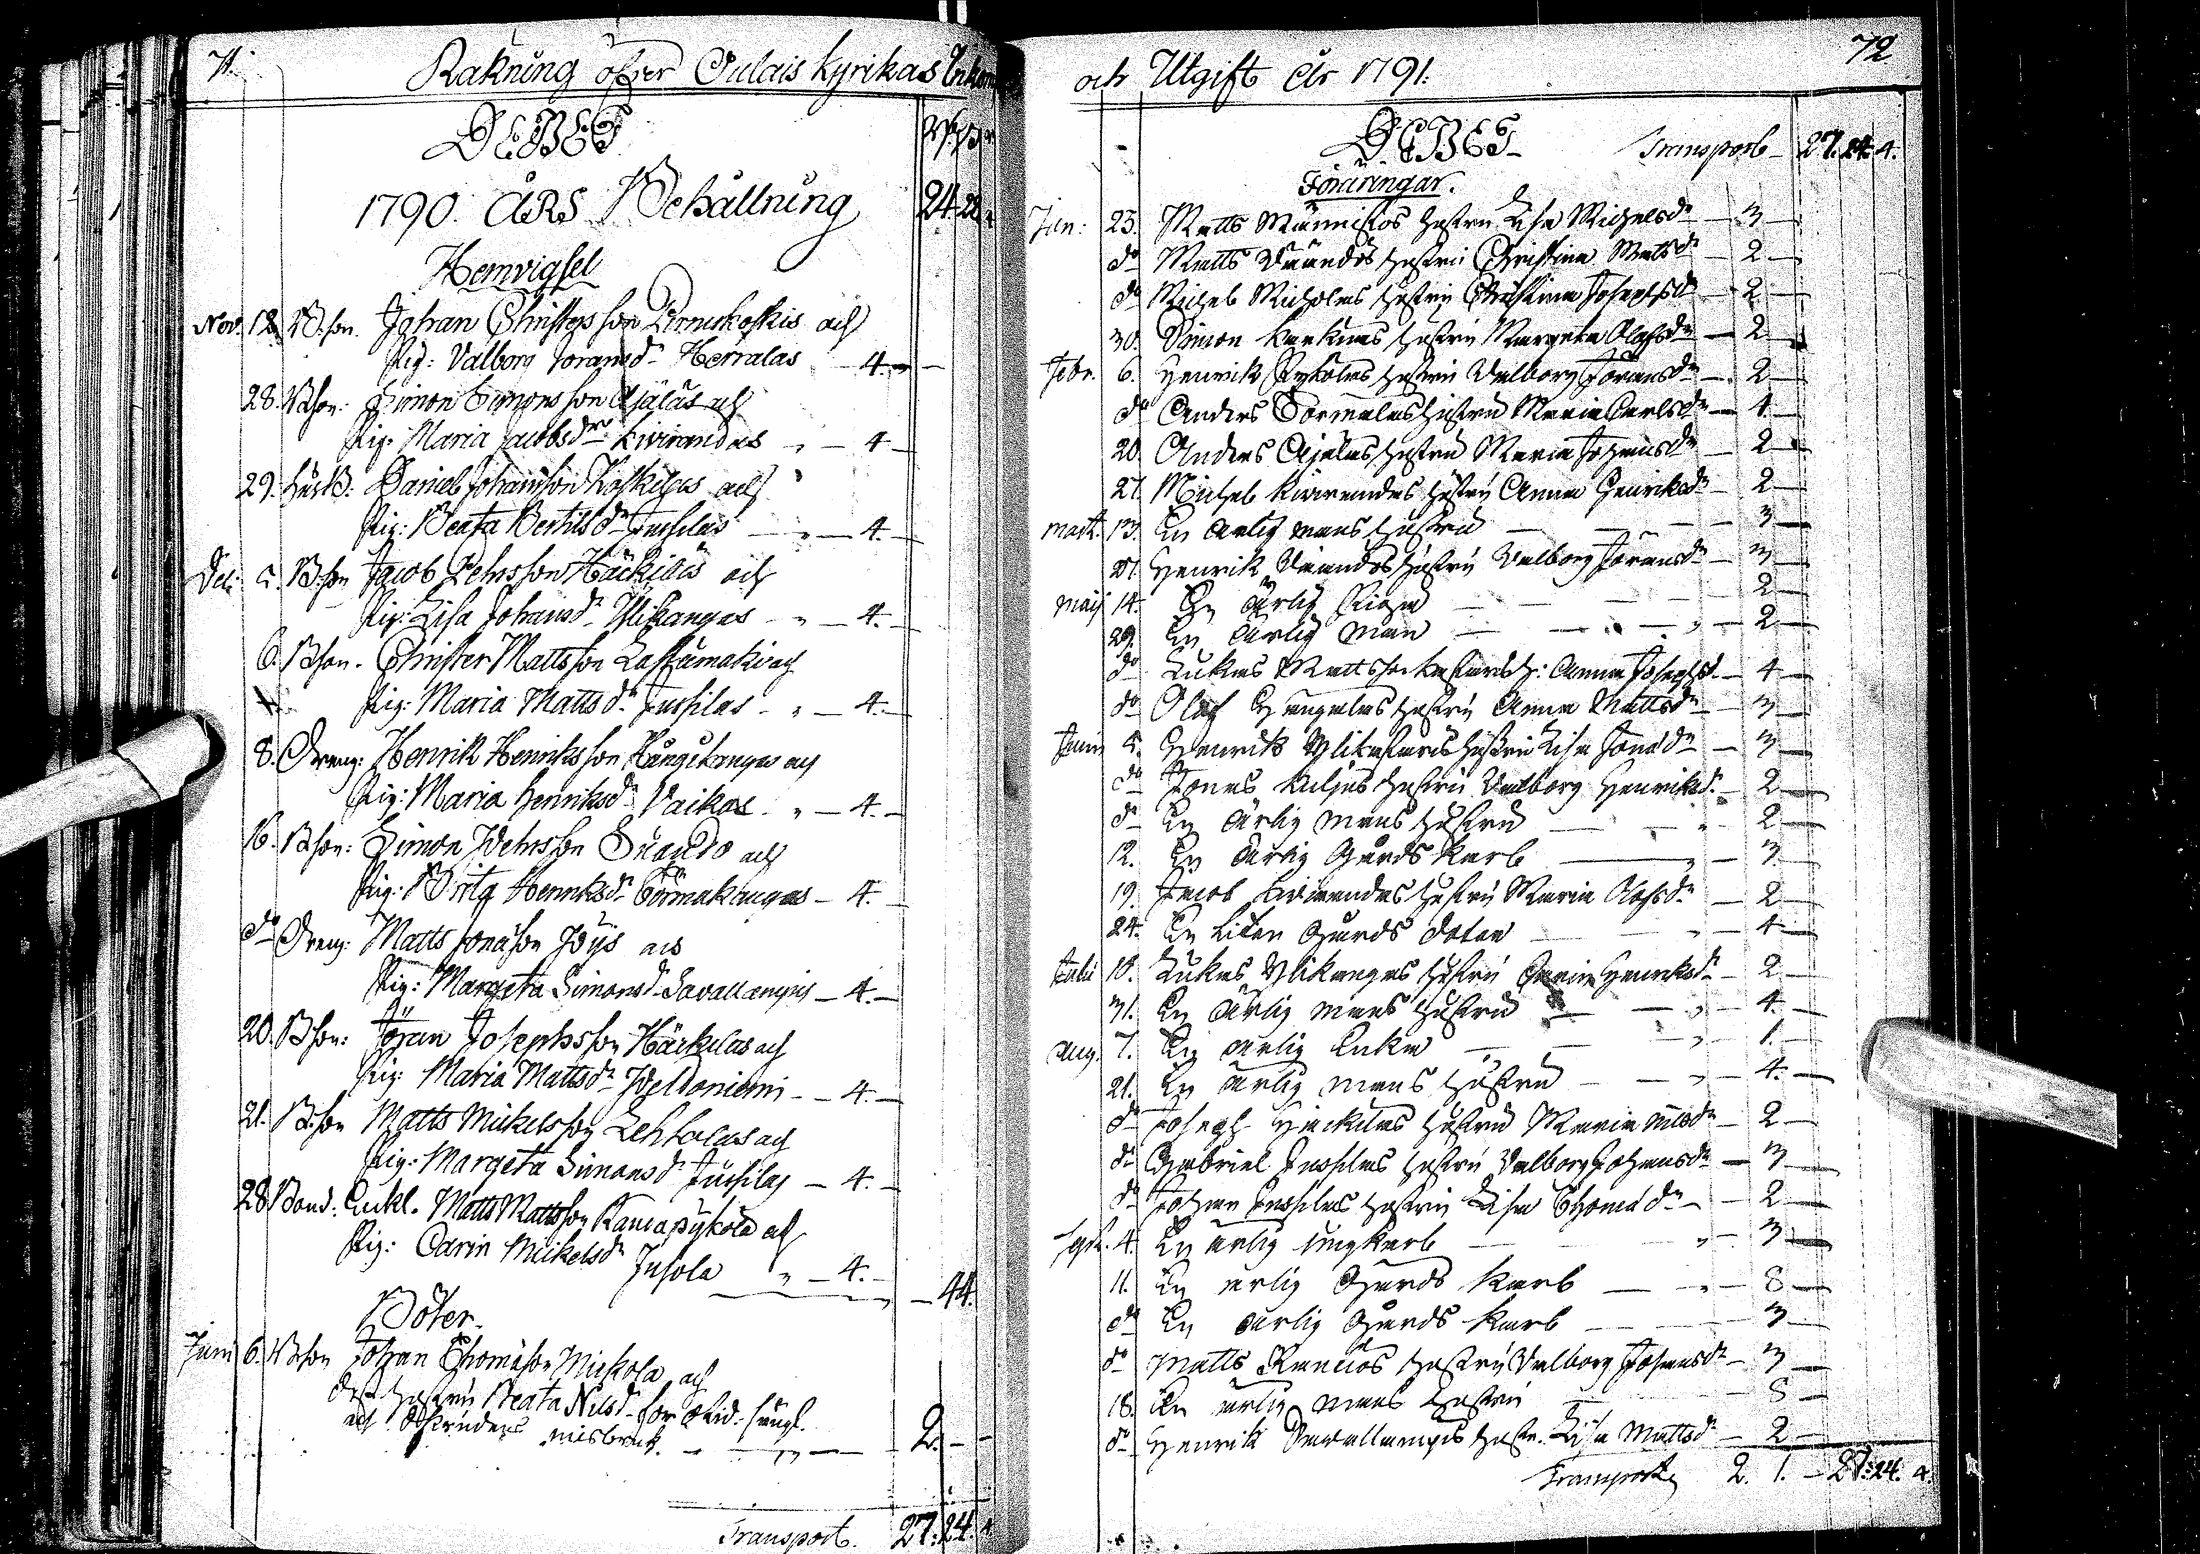 71.
Räkning öfver Oulais kyrikas Inkom
DEBET
1790. ÅRS Behållning 24 22
Hemvigsel
Nov. 12 B.son. Johan Christersson ach
Pig: Valborg Joransdr Herralas - 4 -
28. B.son: Simon Simonsson Ojalas ach
Pig: Maria Jacobsdr Kivirandas - 4 -
29. Husb: Daniel Johansson Koskilas ach
Pig: Beata Bertilsdr Jussilas - 4. -
Dec: 5. B.son Jacob Pehrsson Häckiläs ach
Pig: Lisa Johansdr Ylikangas - 4. -
6. B.son. Christer Mattsson Lassimaki ach
Pig: Maria Mattsdr Jussilas - 4. -
8. Dreng: Henrik Henriksson Kangskangas ach
Pig: Maria Henriksdr Vaikos - 4. -
16. B.son: Simon Pehrsson Suando ach
Pig: Brita Henriksdr Törmäkangas - 4. -
do Dreng: Matts Jonasson ach
Pig: Margeta Simonsdr Savallampis - 4. -
20. B.son: Jöran Josephsson Häckilas ach
Pig: Maria Mattsdr - 4. -
21. B.son Matts Mickelsson Lehtolas ach
Pig: Margeta Simonsdr Jussilas - 4. -
28 Bond: Enkl. Matts Mattsson ach
Pig: Carin Mickelsdr Jusola - 4. - - 44.
Böter.
Juni 6. B.son Johan Thomasson Mickola ach
dess hustru Beata Nilsdr för otid: sängl.
ach misbruk. - 2. - -
Transport. 27. 24. 4
och Utgift År 1791.
72
DEBET Transport - 27. 24. 4.
Föräringar.
Jan: 23. Matts Männistös hustru Lisa Michelsdr - 3 -
do Matts Väändös hustru Christina Mattsdr - 2 -
do Michel Mickolas hustru Christina Josephsdr - 2 -
30. Simon hustru Margeta Olofsdr - 2 -
Febr. 6. Henrik hustru Valborg Joransdr - 2 -
do Anders Tormälas hustru Maria Carlsdr - 4 -
20. Anders Ojalas hustru Maria Johansdr - 2 -
27. Michel Kivirandas hustru Anna Henriksdr - 2 -
mart. 13. En ärlig mans hustru - 3 -
27. Henrik Väändös hustru Valborg Joransdr - 3 -
maij 14. En ärlig Piga - 2 -
29. En ärlig man - 2 -
do Lukas Mattsson h: Anna Josephsd - 4 -
do Olof Hengelas hustru Anna Mattsdr - 3 -
Junii 5. Henrik hustru Lisa Jonædr - 3 -
do Jonas Kiljus hustru Valborg Henriksd - 2 -
do En ärlig mans hustru - 2 -
12. En ärlig Gårds karl - 3 -
19. Jacob Kivirandas hustru Maria Olofsdr - 2 -
24. En liten Gårds doter - 4 -
Julii 10. Lukas Ylikangas hustru Henriksdr - 2 -
31. En ärlig mans hustru - 4. -
Aug. 7. En ärlig Enka - 1. -
21. En ärlig mans hustru - 4. -
do Joseph Häckilas hustru Maria Nilsdr - 2 -
do Gabriel Jussilas hustru Valborg Johansdr - 3 -
do Johan Jussilas hustru Lisa Thomædr - 2 -
Sept. 4. En ärlig ungkarl - 3 -
11. En ärlig Gårds karl - 8 -
do En ärlig Gårds karl - 3 -
do Matts hustru Valborg Johansdr - 3 -
18. En ärlig mans hustru - 8 -
do Henrik Savallampis hustr. Lisa Mattsd - 2 -
Transport 2. 1. - 27. 24. 4.